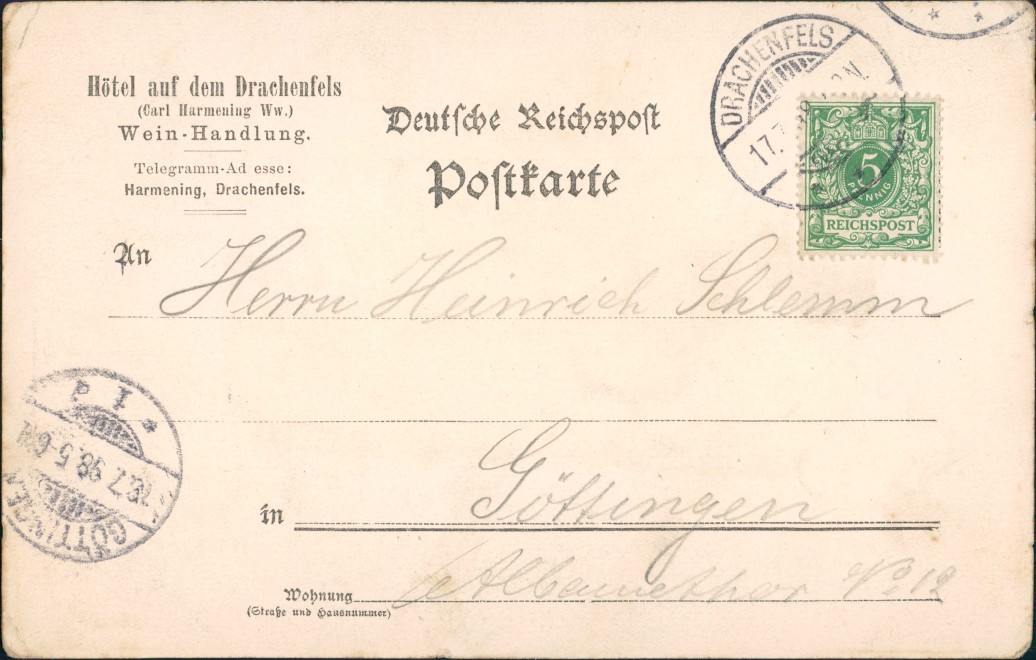 Hôtel auf dem Drachenfels
(Carl Harmening Ww.)
Wein-Handlung.
Telegramm-Ad esse:
Harmening, Drachenfels.
Deutſche Reichspoſt
Poſtkarte
DRACHENFELS
17.7
5
PFENNIG
REICHSPOST
An Herrn Heinrich Schlemm
in Göttingen
Wohnung Albanerthor No 12
(Straße und Hausnummer)
GÖTTINGEN
18.7.98.5-6N